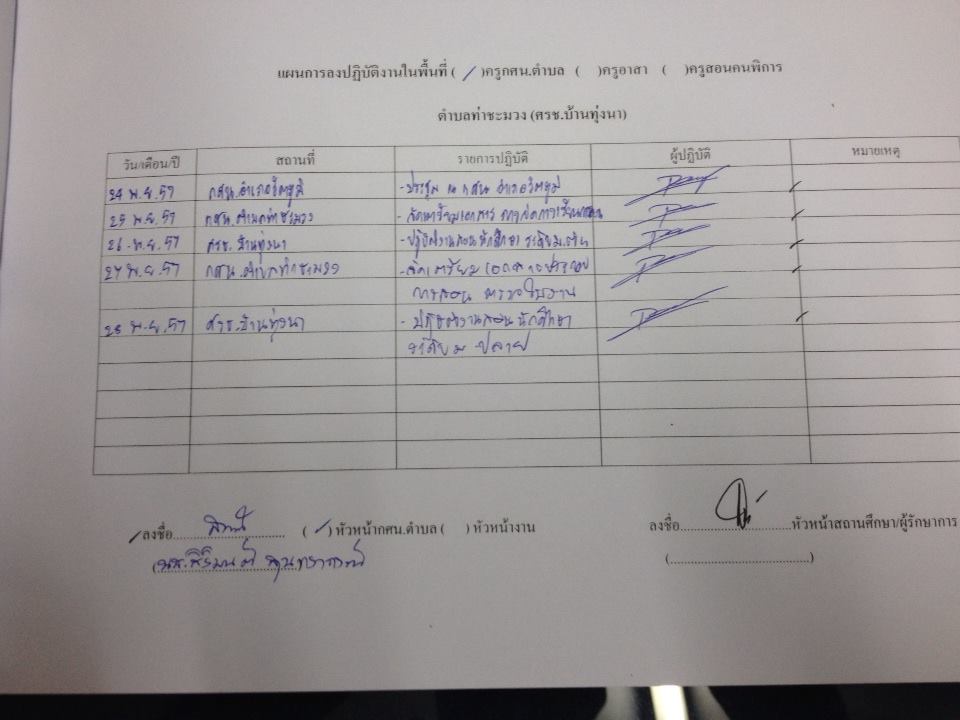 แผนการลงปฏิบัติงานในพื้นที่ ( / )ครูกศน.ตำบล ( )ครูอาสา ( )ครูสอนคนพิการ
ตำบลท่าชะมวง (ศรช.บ้านทุ่งนา)
วัน/เดือน/ปี สถานที่ รายการปฏิบัติ ผู้ปฏิบัติ หมายเหตุ
24 พ.ย.57 กศน.อำเภอรัตภูมิ - ประชุม ณ กศน อำเภอรัตภูมิ
25 พ.ย.57 กศน.ตำบลท่าชะมวง - จัดหาเตรียมเอกสาร การจัดการเรียนการสอน
26 พ.ย.57 ศรช.บ้านทุ่งนา - ปฏิบัติงานสอนนักศึกษา ระดับม.ต้น
27 พ.ย.57 กศน.ตำบลท่าชะมวง - จัดเตรียมเอกสารประกอบ
การสอน ตรวจใบงาน
28 พ.ย.57 ศรช.บ้านทุ่งนา - ปฏิบัติงานสอนนักศึกษา
ระดับ ม.ปลาย
ลงชื่อ.................... ( / ) หัวหน้ากศน.ตำบล ( ) หัวหน้างาน ลงชื่อ....................หัวหน้าสถานศึกษา/ผู้รักษาการ
(นส. (....................)